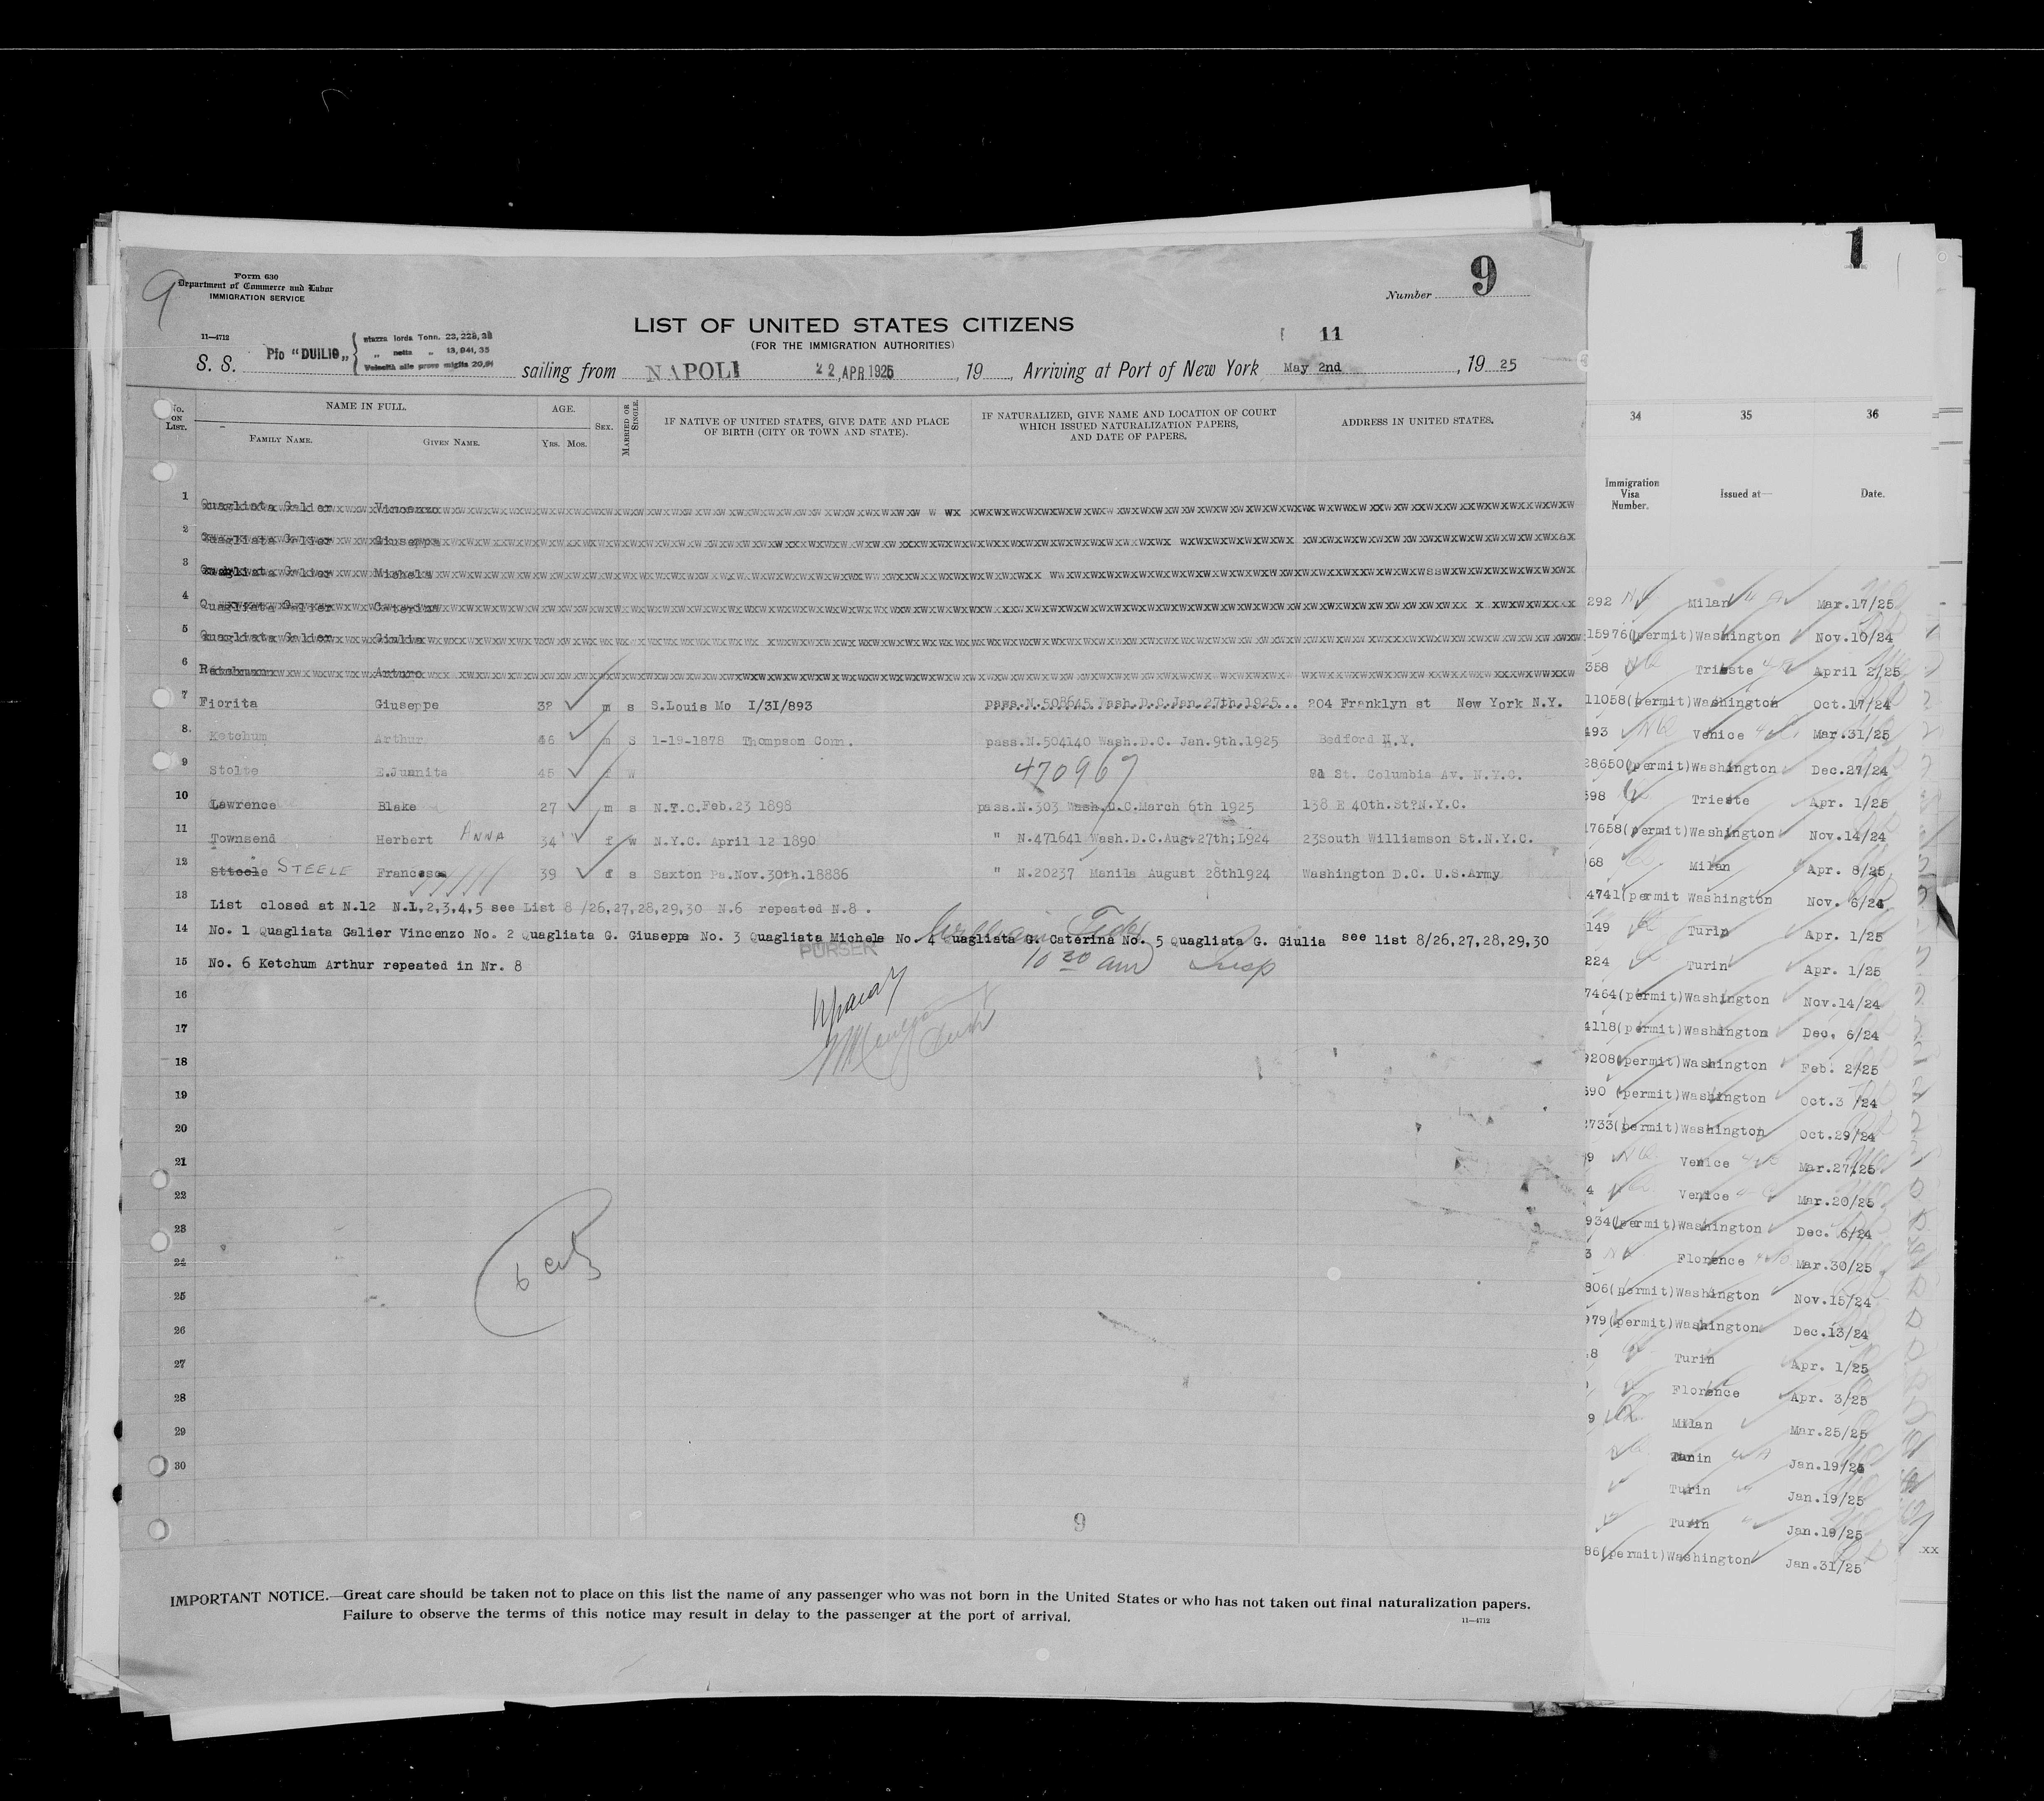 9
Form 630
Department of Commerce and Labor
IMMIGRATION SERVICE
Number 9
11—4712
LIST OF UNITED STATES CITIZENS
(FOR THE IMMIGRATION AUTHORITIES)
11
S. S. Pfo "DUILIO" stazza lorda Tonn. 23,228,28
" netta " 13,941,35
Velocità alle prove miglia 20,91
sailing from NAPOLI 22 APR 1925, 19 , Arriving at Port of New York May 2nd , 19 25
No. ON LIST. NAME IN FULL. AGE. SEX. MARRIED OR SINGLE. IF NATIVE OF UNITED STATES, GIVE DATE AND PLACE OF BIRTH (CITY OR TOWN AND STATE). IF NATURALIZED, GIVE NAME AND LOCATION OF COURT WHICH ISSUED NATURALIZATION PAPERS, AND DATE OF PAPERS. ADDRESS IN UNITED STATES.
FAMILY NAME. GIVEN NAME. YRS. MOS.
1 Quagliata Galier Vincenzo
2 Quagliata Galier Giuseppe
3 Quagliata Galier Michele
4 Quagliata Galier Caterina
5 Quagliata Galier Giulia
6 Arturo
7 Fiorita Giuseppe 32 m s S.Louis Mo I/31/893 pass.N.508645 Wash.D.C.Jan.27th.1925 204 Franklyn st New York N.Y.
8 Ketchum Arthur 46 m S 1-19-1878 Thompson Conn. pass.N.504140 Wash.D.C. Jan.9th.1925 Bedford N.Y.
9 Stolte E.Juanita 45 f w 470967 St. Columbia Av. N.Y.C.
10 Lawrence Blake 27 m s N.Y.C.Feb.23 1898 pass.N.303 Wash.D.C.March 6th 1925 138 E 40th.St?N.Y.C.
11 Townsend Herbert ANNA 34 f w N.Y.C. April 12 1890 " N.471641 Wash.D.C.Aug.27th;L924 23South Williamson St.N.Y.C.
12 Stteele STEELE Francesca 39 f s Saxton Pa.Nov.30th.18886 " N.20237 Manila August 28th1924 Washington D.C. U.S.Army
13 List closed at N.12 N.L,2,3,4,5 see List 8 /26,27,28,29,30 N.6 repeated N.8 .
14 No. 1 Quagliata Galier Vincenzo No. 2 Quagliata G. Giuseppe No. 3 Quagliata Michele No. 4 Quagliata G. Caterina No. 5 Quagliata G. Giulia see list 8/26,27,28,29,30
PURSER
15 No. 6 Ketchum Arthur repeated in Nr. 8
10 30 am Insp
16
17
18
19
20
21
22
23
24
25
26
27
28
29
30
9
IMPORTANT NOTICE.—Great care should be taken not to place on this list the name of any passenger who was not born in the United States or who has not taken out final naturalization papers.
Failure to observe the terms of this notice may result in delay to the passenger at the port of arrival.
11—4712
1
34 35 36
Immigration Visa Number. Issued at— Date.
292 Milan Mar.17/25
15976(permit)Washington Nov.10/24
358 Trieste April 2/25
11058(permit)Washington Oct.17/24
493 Venice Mar.31/25
28650(permit)Washington Dec.27/24
598 Trieste Apr. 1/25
17658(permit)Washington Nov.14/24
68 Milan Apr. 8/25
4741(permit Washington Nov. 6/24
149 Turin Apr. 1/25
224 Turin Apr. 1/25
7464(permit)Washington Nov.14/24
4118(permit)Washington Dec. 6/24
9208(permit)Washington Feb. 2/25
690 (permit)Washington Oct.3 /24
2733(permit)Washington Oct.29/24
9 Venice Mar.27/25
4 Venice Mar.20/25
934(permit)Washington Dec. 6/24
3 Florence Mar.30/25
806(permit)Washington Nov.15/24
979(permit)Washington Dec.13/24
8 Turin Apr. 1/25
Florence Apr. 3/25
9 Milan Mar.25/25
Turin Jan.19/25
Turin Jan.19/25
Turin Jan.19/25
86(permit)Washington Jan.31/25
xx